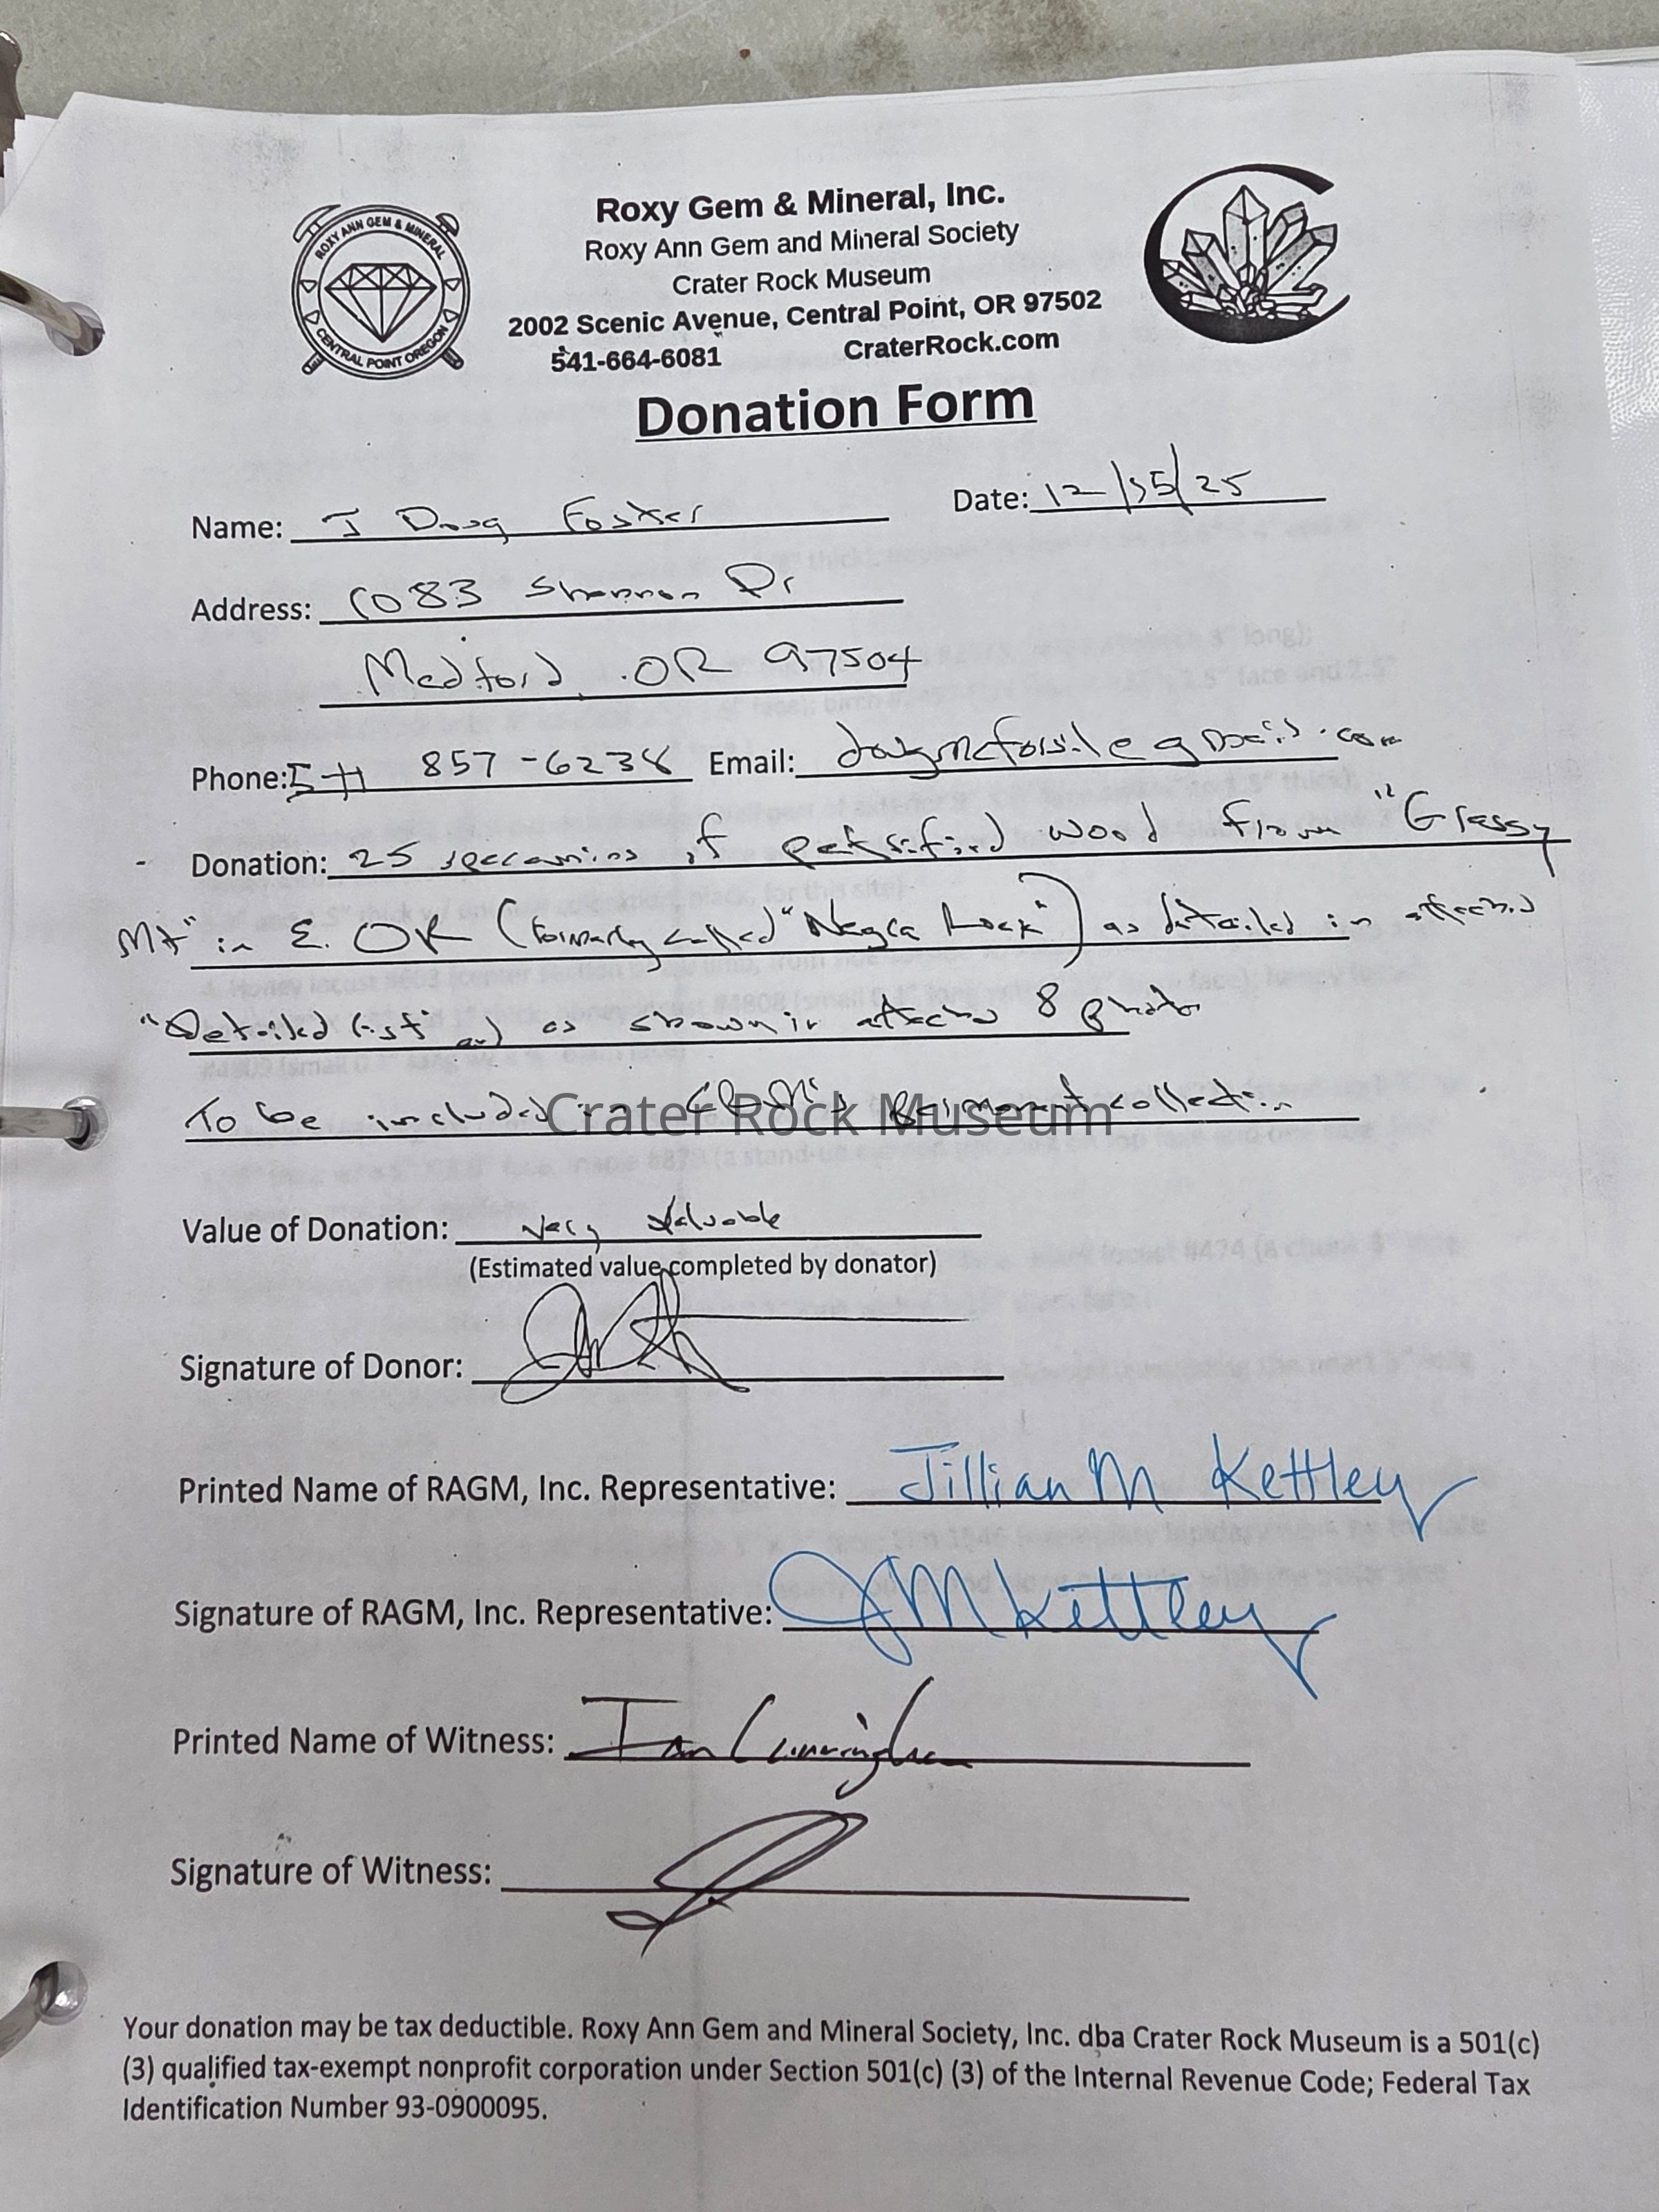 ROXY ANN GEM & MINERAL
CENTRAL POINT OREGON
Roxy Gem & Mineral, Inc.
Roxy Ann Gem and Mineral Society
Crater Rock Museum
2002 Scenic Avenue, Central Point, OR 97502
541-664-6081 CraterRock.com
Donation Form
Name: J Doug Foster Date: 12/15/25
Address: 1083 Shannon Dr
Medford, OR 97504
Phone: 541 857-6238 Email:
Donation: 25 of wood from "Grassy
Mt" in E. OR (formerly called "Rock") as detailed in attached
"Detailed list" and as shown in attached 8 photos
To be included in CRM's permanent collection
Crater Rock Museum
Value of Donation: Very Valuable
(Estimated value completed by donator)
Signature of Donor:
Printed Name of RAGM, Inc. Representative: Jillian M Kettley
Signature of RAGM, Inc. Representative: JM Kettley
Printed Name of Witness: Ian Cunningham
Signature of Witness:
Your donation may be tax deductible. Roxy Ann Gem and Mineral Society, Inc. dba Crater Rock Museum is a 501(c)
(3) qualified tax-exempt nonprofit corporation under Section 501(c) (3) of the Internal Revenue Code; Federal Tax
Identification Number 93-0900095.